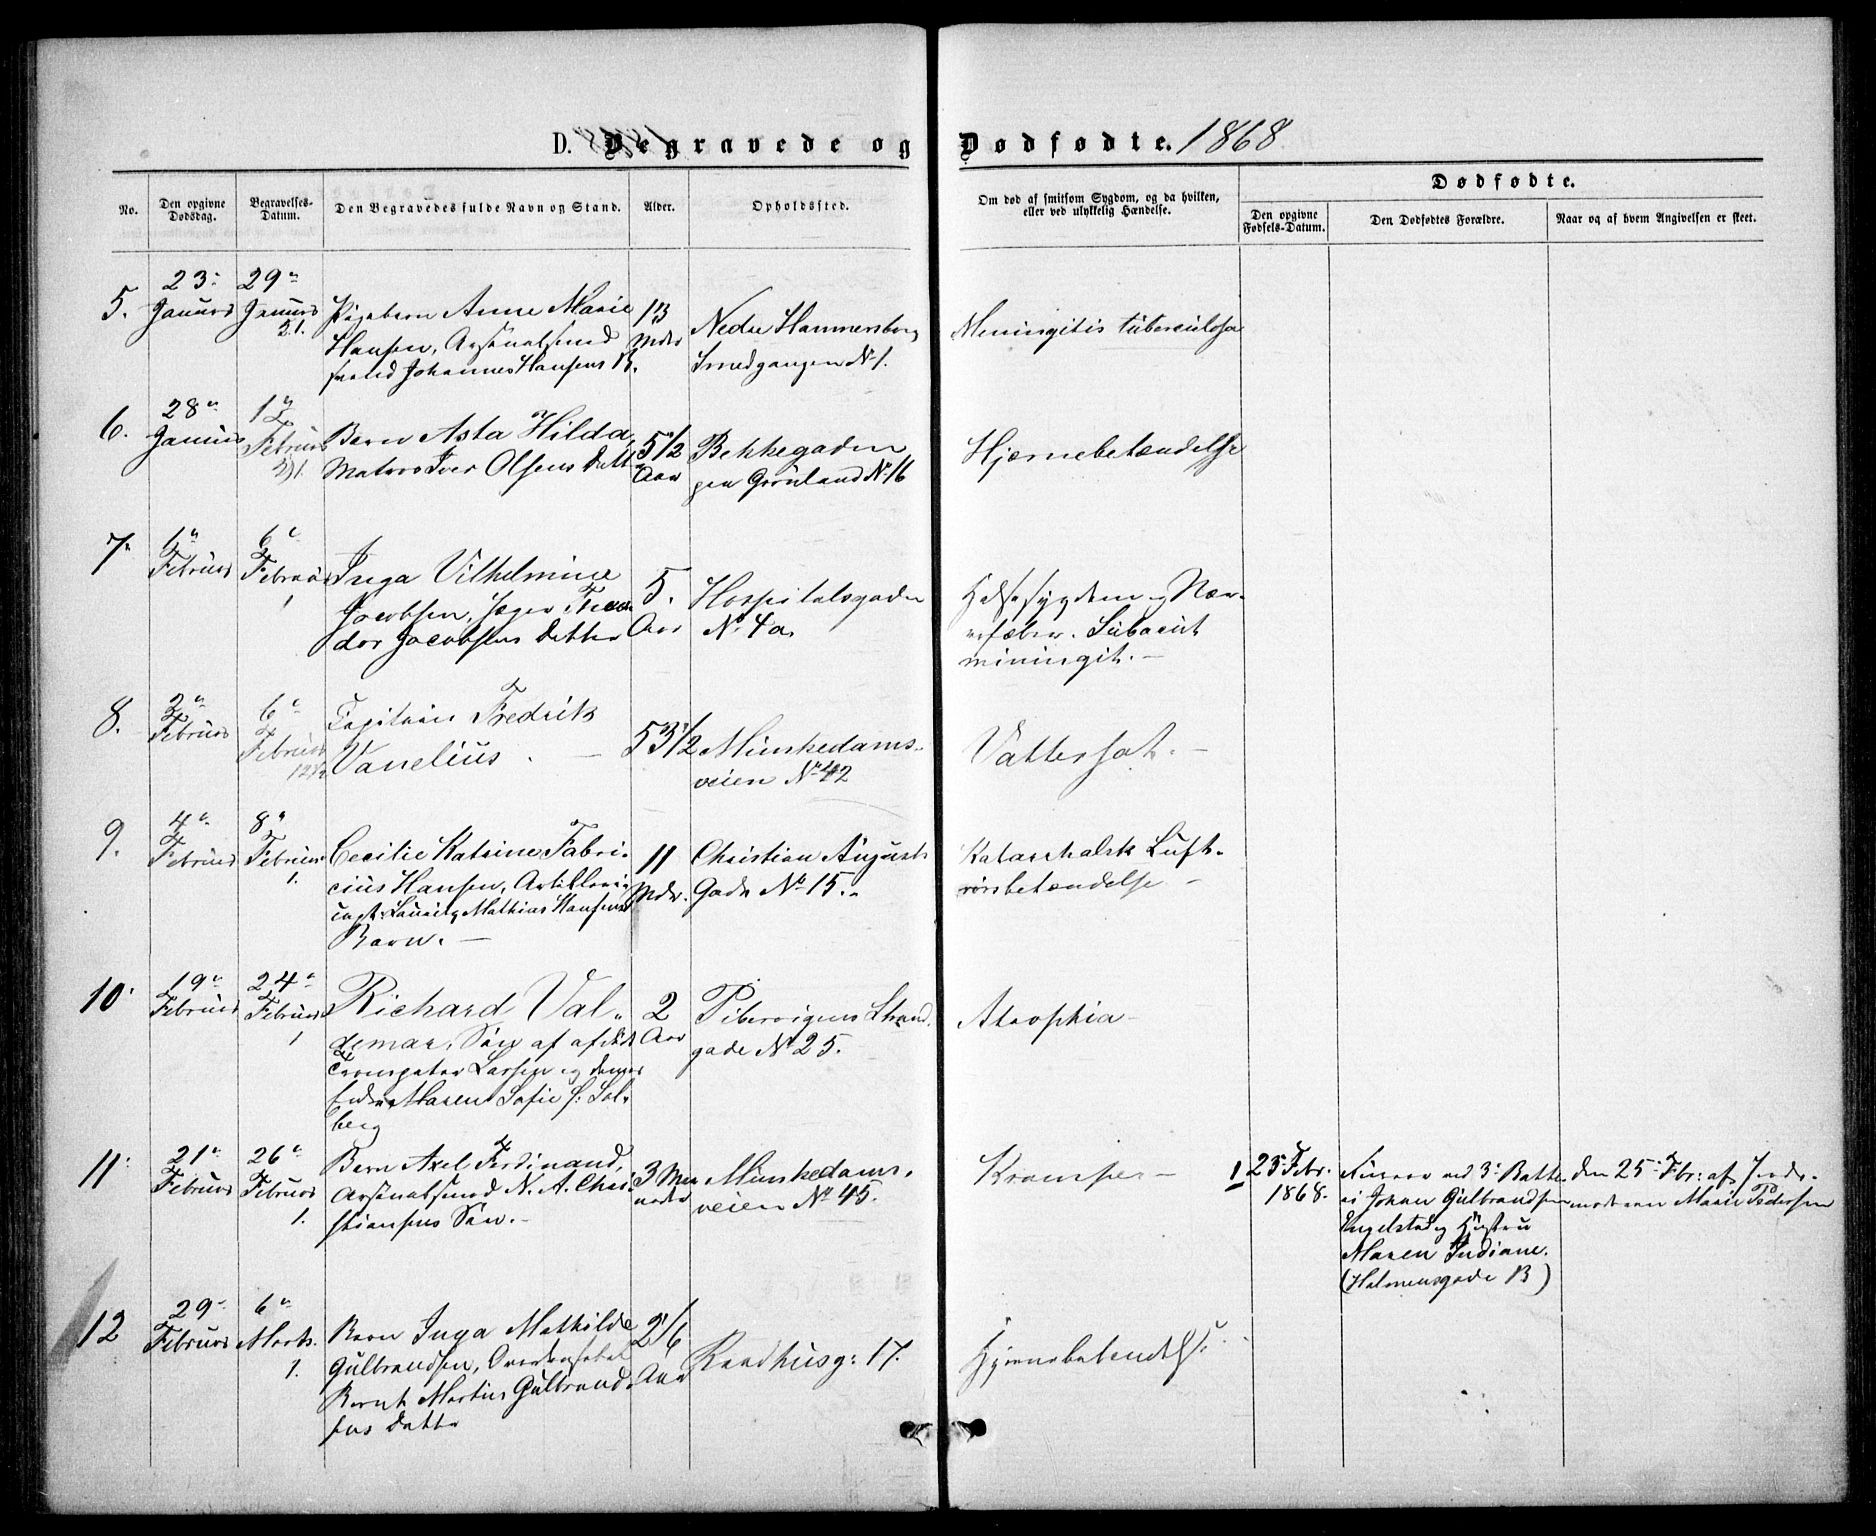 D. Begravede og Dødfødte. 1868
No.
Den opgivne Dødsdag.
Begravelses-Datum.
Den Begravedes fulde Navn og Stand.
Alder.
Opholdssted.
Om død af smitsom Sygdom, og da hvilken, eller ved ulykkelig Hændelse.
Dødfødte.
Den opgivne Fødsels-Datum.
Den Dødfødtes Forældre.
Naar og af hvem Angivelsen er skeet.
5.
23 Januar
29 Januar
Pigebarn Anne Marie
Hansen, Arsenalsmed
Johannes Hansens B.
13 Mdr
Nedre Hammersborg
Smedgangen No 1.
Meningitis tuberculosa
6.
28 Januar
1 Februar
Barn Asta Hilda,
Matros Iver Olsens Datter
5 1/2 Aar
Bekkegaden
Grønland No 16
Hjærnebetændelse
7.
1 Februar
6 Februar
1
Inga Vilhelmine
Jacobsen, Jæger Theo
dor Jacobsens Datter
5. Aar
Hospitalsgaden
No 4a
Halssygdom og Nær-
vefæber. Subacut
miningit. -
8.
2 Februar
6 Februar
Capitain Fredrik
Vanelius.
53 1/2
Munkedams-
veien No 42
Vattersot. -
9.
4 Februar
8 Februar
1.
Cecilie Katrine Fabri-
cius Hansen,
Mathias Hansens
Barn. -
11 Mdr.
Christian Augusts
Gade No 15.
Katarrhalsk Luft-
rørsbetændelse -
10.
19 Februar
24 Februar
1
Richard Val-
demar, Søn af afskd
Larsen og
Maren Sofie f. Sol-
berg
2 Aar
Pibervigens Strand
gade No 25.
Atrophia -
11.
21 Februar
26 Februar
1.
Barn Axel Ferdinand,
Arsenalsmed N. A. Chri-
stiansens Søn. -
3 Maa
neder
Munkedams-
veien No 45.
Kramper -
1
25 Febr.
1868.
ved 3 Batte
ri Johan Gulbrandsen
Engelstad og Hustru
Maren Indiane.
(Holmensgade 13)
den 25 Fbr: af Jorde-
moderen Marie Pedersen
12
29 Februar
6 Marts.
1.
Barn Inga Mathilde
Gulbrandsen,
Bernt Martin Gulbrand
sens Datter
2 1/6 Aar
Raadhusg: 17.
Hjernebetendelse.